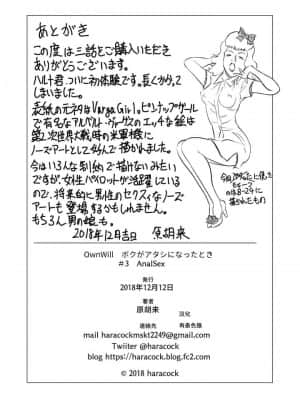 あとがき
この度は三話をご購入いただき
ありがとうございます。
ハルト君、ついに初体験です。長くかかって
しまいました。
表紙の元ネタはVarga Girl。ピンナップガール
で有名なアルベルト・ヴァーガスのエッチな絵は
第2次世界大戦時の米軍機に
ノーズアートとして好んで描かれました。
今はいろんな制約で描けないみたい
ですが、女性パイロットが活躍している
ので、将来的に男性のセクスィなノーズ
アートも登場するかもしれません。
もちろん男の娘も。
2018年12月吉日 原胡来
OwnWill ボクがアタシになったとき
#3 AnalSex
発行
2018年12月12日
著者
原胡来
汉化
連絡先
有条色狼
mail haracockmskt2249@gmail.com
Twiiter @haracock
blog https://haracock.blog.fc2.com
© 2018 haracock